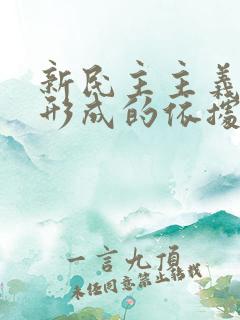 新民主主义
形成的依据
一言九顶
未经同意禁止转载